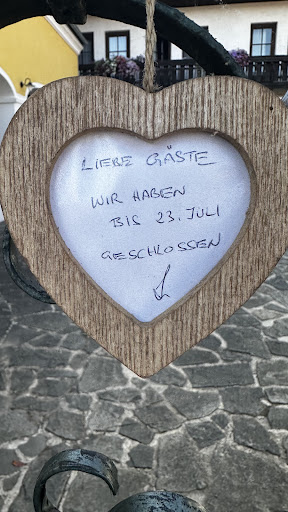 LIEBE GÄSTE
WIR HABEN
BIS 23. JULI
GESCHLOSSEN